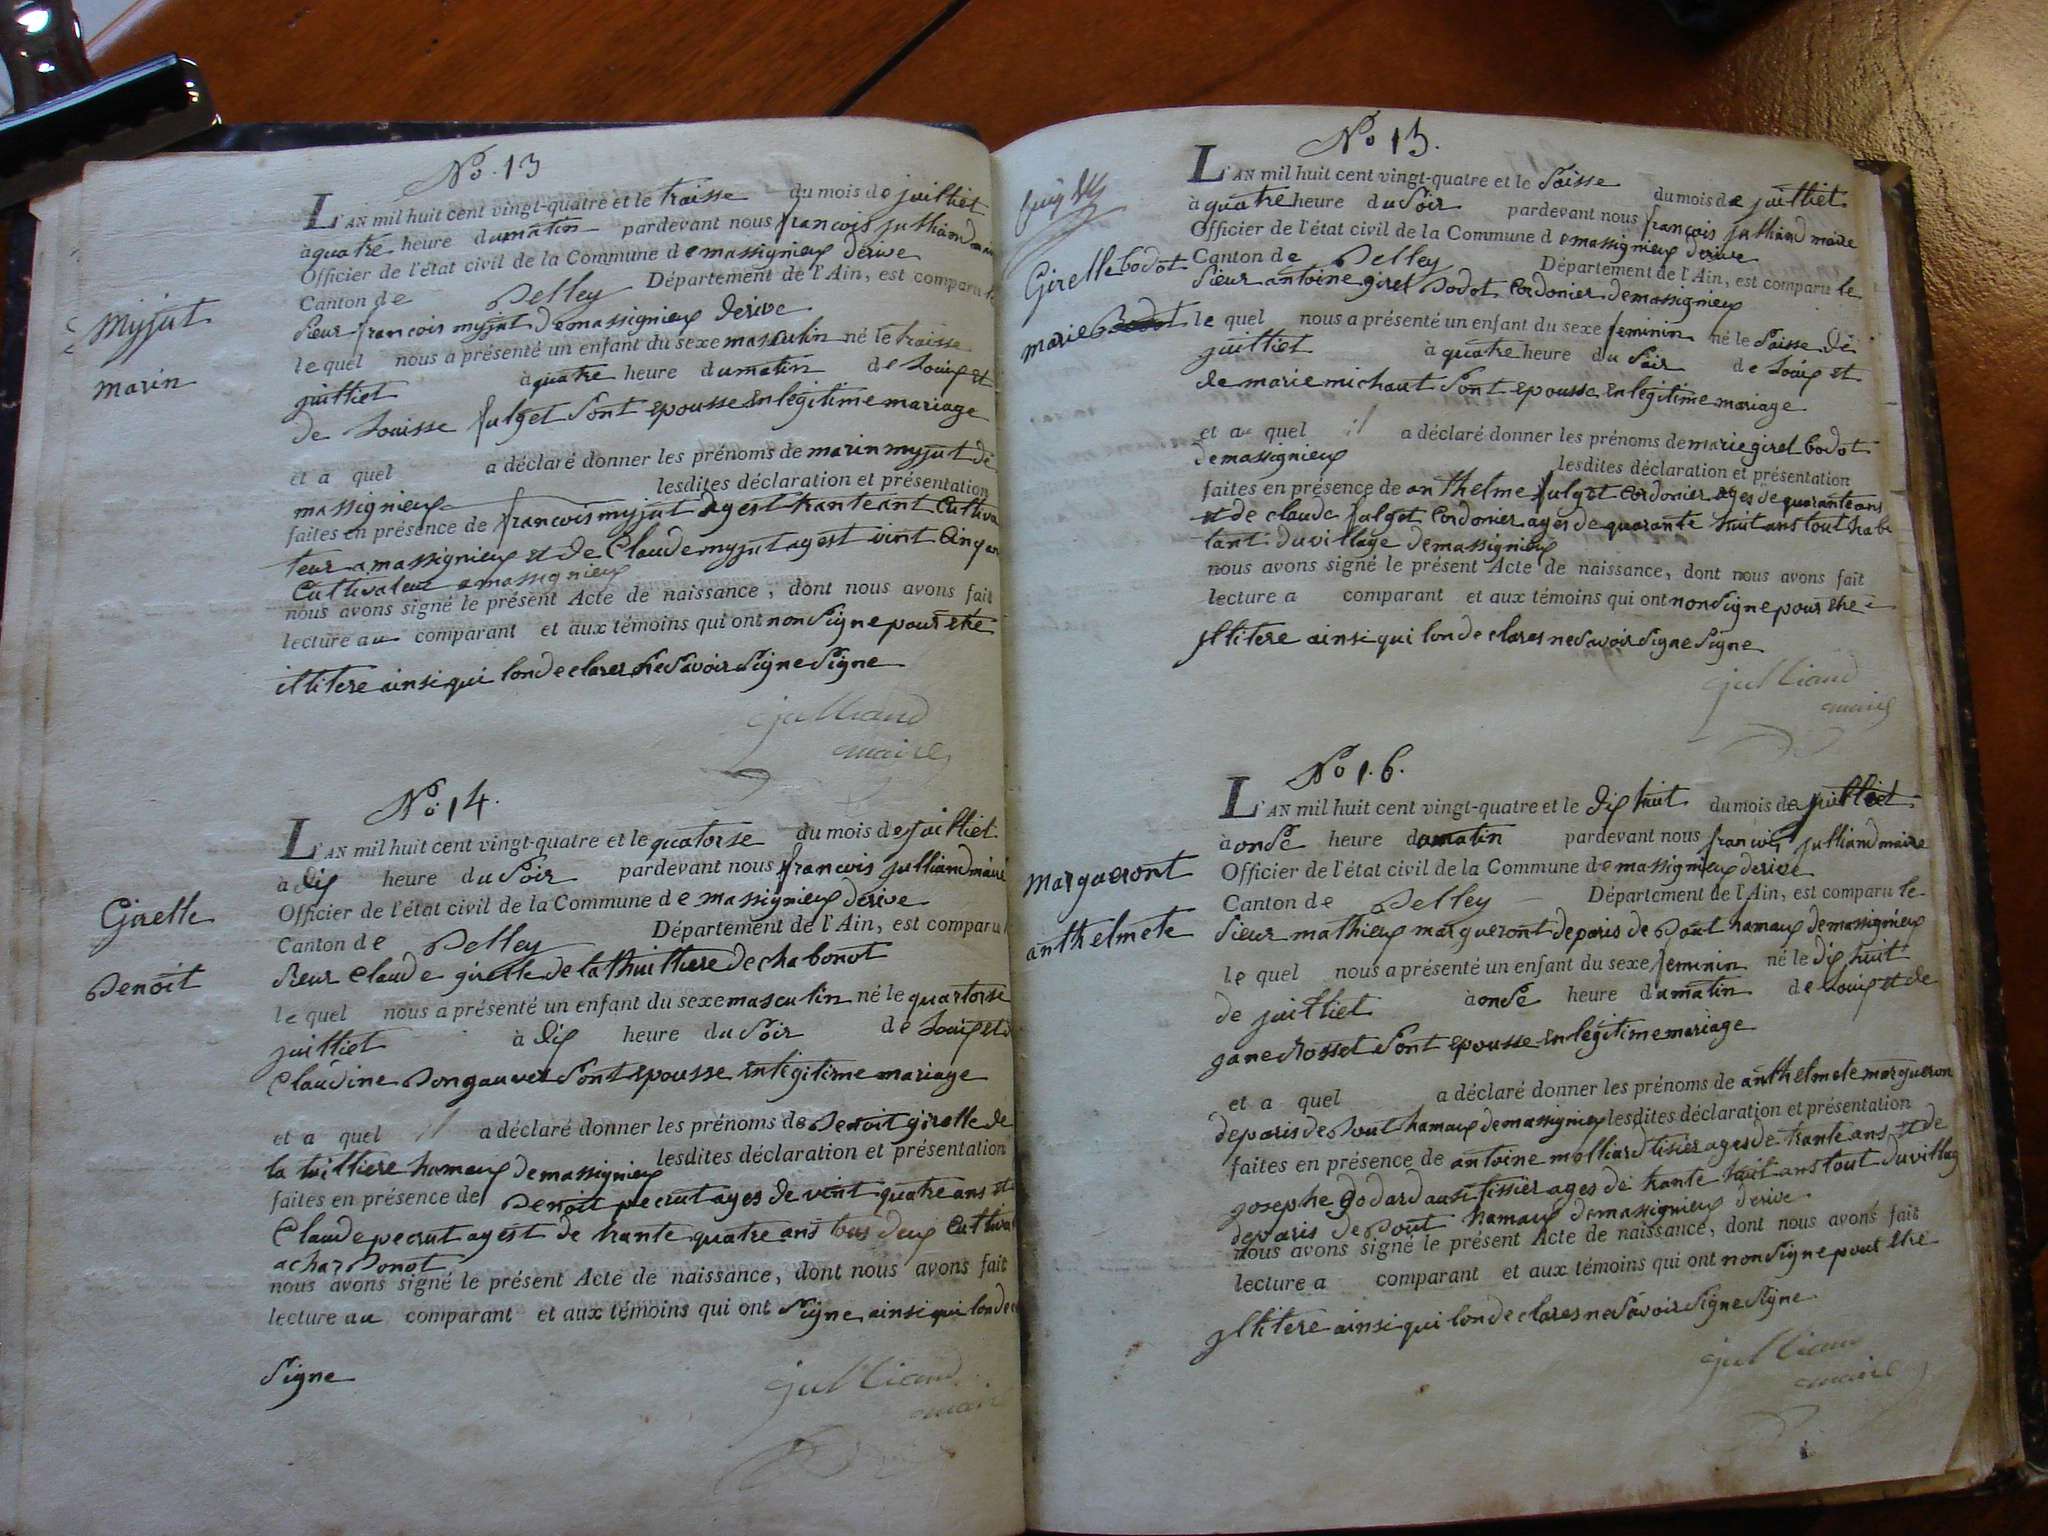 No. 13
L'AN mil huit cent vingt-quatre et le traisse du mois de juilliet
à quatre heure du matin pardevant nous francois julliand maire
Officier de l'état civil de la Commune de massignieux derive
Canton de Belley Département de l'Ain, est comparu le
Sieur francois myjut demassignieux derive
le quel nous a présenté un enfant du sexe masculin né le traisse
juilliet à quatre heure du matin de Louis et
de Louisse fulget sont epousse en legitime mariage
et a quel a déclaré donner les prénoms de marin myjut de
massignieux lesdites déclaration et présentation
faites en présence de francois myjut agest trante ant Cultiva
teur a massignieux et de Claude myjut agest vint Cinq an
Cultivateur a massignieux
nous avons signé le présent Acte de naissance, dont nous avons fait
lecture au comparant et aux témoins qui ont non Signe pour etre
illitere ainsi qui lon declarer ne Savoir Signe Signe
julliand
maire
Myjut
marin
No. 14.
L'AN mil huit cent vingt-quatre et le quatorse du mois de juilliet
à dix heure du Soir pardevant nous francois julliand maire
Officier de l'état civil de la Commune de massignieux derive
Canton de Belley Département de l'Ain, est comparu l
Sieur Claude girelle de la thuilliere de chabonot
le quel nous a présenté un enfant du sexe masculin né le quartorse
juilliet à dix heure du Soir de Louis et d
Claudine Bongauvet sont epousse en legitime mariage
et a quel il a déclaré donner les prénoms de Benoit girelle de
la tuilliere hamaux de massignieux lesdites déclaration et présentation
faites en présence de Benoit pecrut ages de vint quatre ans et
Claude pecrut agest de trante quatre ans tous deux Cultiva
a charbonot
nous avons signé le présent Acte de naissance, dont nous avons fait
lecture au comparant et aux témoins qui ont Signe ainsi qui lon de
Signe
julliand
maire
Girelle
Benoit
No 15.
L'AN mil huit cent vingt-quatre et le Saisse du mois de juilliet
à quatre heure du Soir pardevant nous francois julliand maire
Officier de l'état civil de la Commune de massignieux derive
Canton de Belley Département de l'Ain, est comparu le
Sieur antoine girel Bodot Cordonier demassignieux
le quel nous a présenté un enfant du sexe feminin né le Saisse de
juilliet à quatre heure du Soir de Louis et
de marie michaut Sont epousse en legitime mariage
et a quel il a déclaré donner les prénoms de marie girel bodot
demassignieux lesdites déclaration et présentation
faites en présence de anthelme fulget Cordonier ages de quarante ans
et de claude fulget Cordonier ages de quarante huit ans tout habi
tant du village demassignieux
nous avons signé le présent Acte de naissance, dont nous avons fait
lecture a comparant et aux témoins qui ont non Signe pour etre
illitere ainsi qui lon declares ne Savoir Signe Signe
julliand
maire
Girelle bodot
marie
No 16.
L'AN mil huit cent vingt-quatre et le dix huit du mois de juilliet
à onse heure du matin pardevant nous francois julliand maire
Officier de l'état civil de la Commune de massignieux derive
Canton de Belley Département de l'Ain, est comparu le
Sieur mathieux margueront deparis de Bout hamaux demassignieux
le quel nous a présenté un enfant du sexe feminin né le dix huit
de juilliet à onse heure du matin de Louis et de
gane Rosset Sont epousse en legitime mariage
et a quel a déclaré donner les prénoms de anthelmete margueron
deparis de Bout hamaux demassignieux lesdites déclaration et présentation
faites en présence de antoine molliard tisier ages de trante ans et de
josephe godard ausi tissier ages de trante huit ans tout du villag
deparis de Bout hamaux demassignieux derive
nous avons signé le présent Acte de naissance, dont nous avons fait
lecture a comparant et aux témoins qui ont non Signe pour etre
illitere ainsi qui lon declares ne Savoir Signe Signe
julliand
maire
margueront
anthelmete